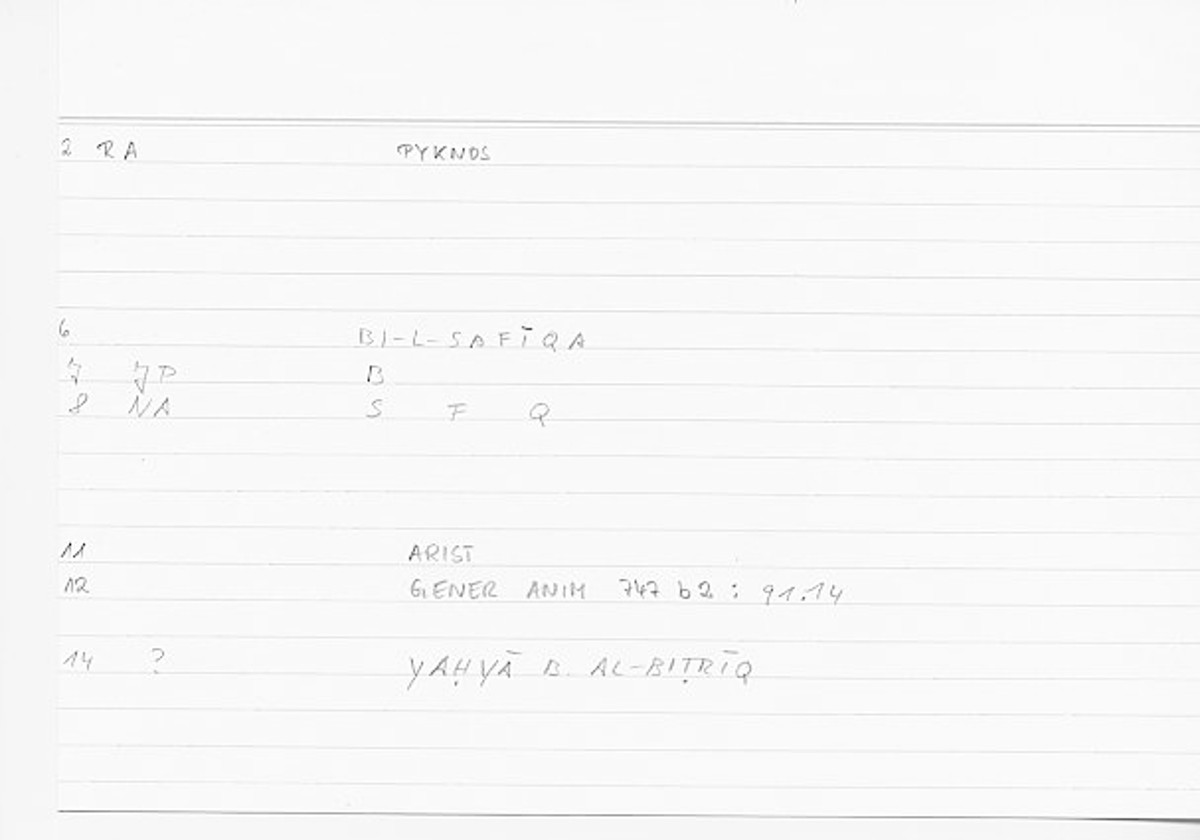 2 RA PYKNOS
6 BI-L-SAFĪQA
7 JP B
8 NA S F Q
11 ARIST
12 GENER ANIM 747 b2 : 91.14
14 ? YAḤYĀ B. AL-BIṬRĪQ